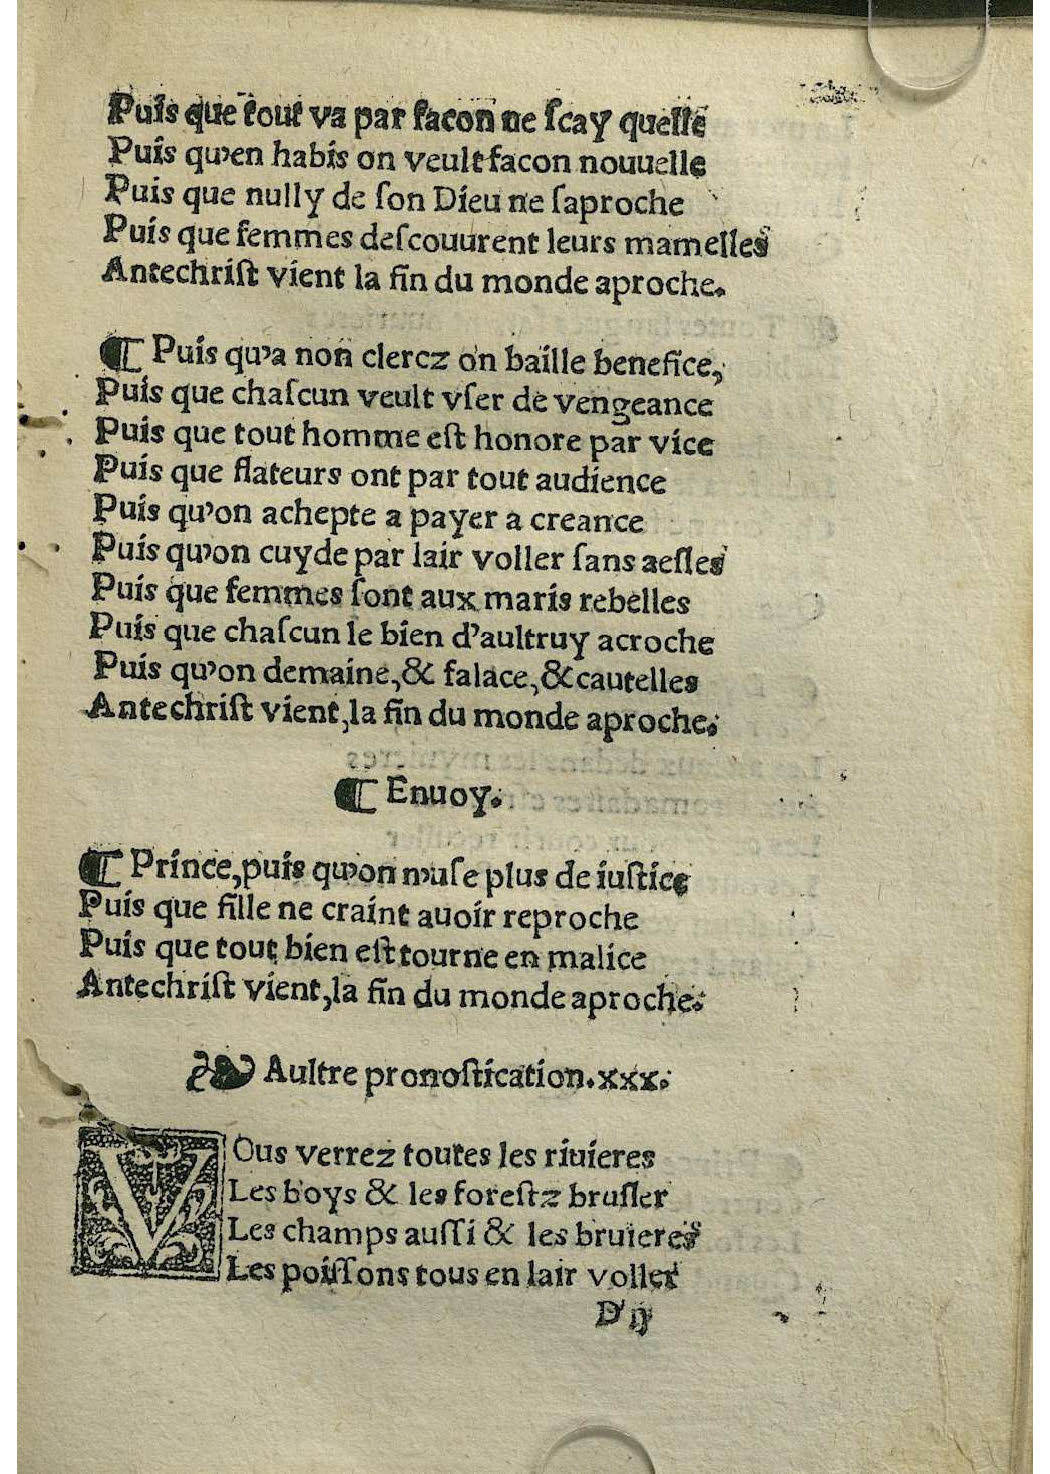 Puis que tout va par facon ne ſcay quelle
Puis qu'en habis on veult facon nouuelle
Puis que nully de ſon Dieu ne ſaproche
Puis que femmes deſcouurent leurs mamelles
Antechriſt vient la fin du monde aproche.
¶ Puis qu'a non clercz on baille benefice,
Puis que chaſcun veult vſer de vengeance
Puis que tout homme eſt honore par vice
Puis que flateurs ont par tout audience
Puis qu'on achepte a payer a creance
Puis qu'on cuyde par lair voller ſans aeſles
Puis que femmes ſont aux maris rebelles
Puis que chaſcun le bien d'aultruy acroche
Puis qu'on demaine, & falace, & cautelles
Antechriſt vient, la fin du monde aproche.
¶ Enuoy.
¶ Prince, puis qu'on n'uſe plus de iuſtice
Puis que fille ne craint auoir reproche
Puis que tout bien eſt tourne en malice
Antechriſt vient, la fin du monde aproche.
❧ Aultre pronoſtication. xxx.
VOus verrez toutes les riuieres
Les boys & les foreſtz bruſler
Les champs auſſi & les bruieres
Les poiſſons tous en lair voller
D ij